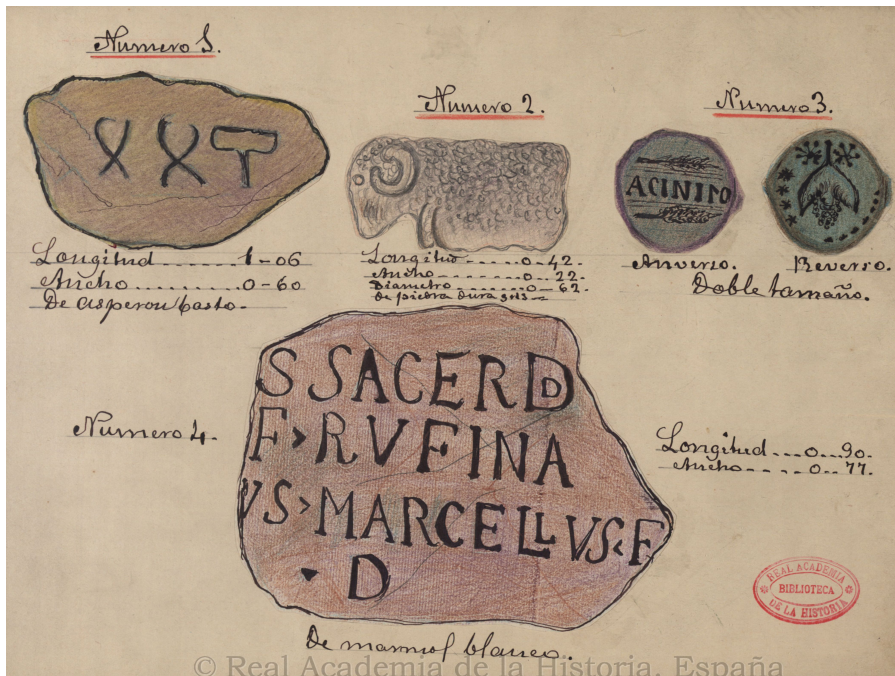 Numero 1.
XXT
Longitud 1-06
Ancho 0-60
De asperon basto.
Numero 2.
Longitud 0-42.
Ancho 0-22.
Diametro 0-62.
de piedra dura gris
Numero 3.
ACINIPO
Anverso.
Reverso.
Doble tamaño.
Numero 4.
S SACERD
F > RVFINA
VS > MARCELLVS < F
D
Longitud 0-90.
Ancho 0-77.
De marmol blanco.
REAL ACADEMIA
BIBLIOTECA
DE LA HISTORIA
© Real Academia de la Historia. España